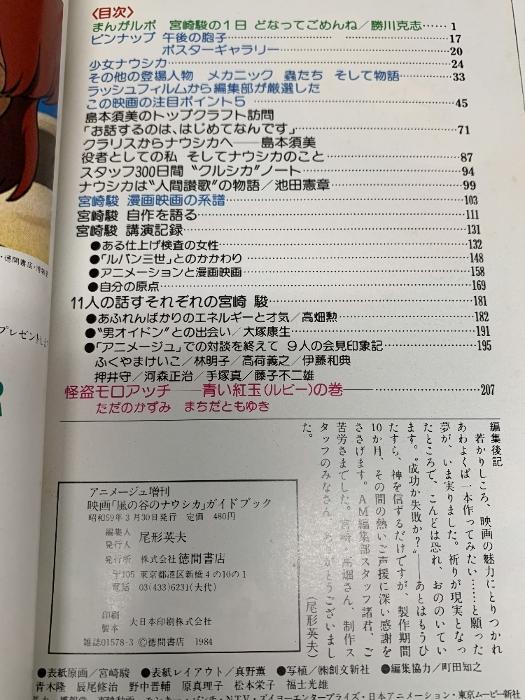 〈目次〉
まんがルポ 宮崎駿の1日 どなってごめんね/勝川克志……1
ピンナップ 午後の胞子……17
ポスターギャラリー……20
少女ナウシカ……24
その他の登場人物 メカニック 蟲たち そして物語……33
ラッシュフィルムから編集部が厳選した
この映画の注目ポイント5……45
島本須美のトップクラフト訪問
「お話するのは、はじめてなんです」……71
クラリスからナウシカへ──島本須美
役者としての私 そしてナウシカのこと……87
スタッフ300日間 “クルシカ”ノート……94
ナウシカは“人間讃歌”の物語/池田憲章……99
宮崎駿 漫画映画の系譜……103
宮崎駿 自作を語る……111
宮崎駿 講演記録……131
●ある仕上げ検査の女性……132
●「ルパン三世」とのかかわり……148
●アニメーションと漫画映画……158
●自分の原点……169
11人の話すそれぞれの宮崎 駿……181
●あふれんばかりのエネルギーとオ気/高畑勲……182
●“男オイドン”との出会い/大塚康生……191
●「アニメージュ」での対談を終えて 9人の会見印象記……195
ふくやまけいこ/林明子/高荷義之/伊藤和典
押井守/河森正治/手塚真/藤子不二雄
怪盗モロアッチ──青い紅玉(ルビー)の巻──207
ただのかずみ まちだともゆき
編集後記
若かりしころ、映画の魅力にとりつかれ
あわよくば一本作ってみたい……と願った
夢が、いま実りました。祈りが現実となっ
たところで、こんどは恐れ、おののいてい
ます。“成功か失敗か?”──あとはもうひ
たすら、神を信ずるだけですが、製作期間
10か月、その間の熱いご声援に深い感謝を
ささげます。AM編集部スタッフ諸君、ご
苦労さまでした。宮崎、高畑さん、制作ス
タッフのみなさん、
がとうございまし
た。
(尾形英夫)
アニメージュ増刊
映画「風の谷のナウシカ」ガイドブック
昭和59年3月30日発行 定価 480円
編集人
発行人 尾形英夫
発行所 株式会社 徳間書店
〒105 東京都港区新橋4の10の1
電話 03(433)6231(大代)
印刷
製本 大日本印刷株式会社
雑誌01578-3 Ⓒ徳間書店 1984
●表紙原画/宮崎駿 ●表紙レイアウト/真野薫 ●写植/㈱創文新社 ●編集協力/町田知之
青木隆 辰尾修治 野中晋輔 原真理子 松本栄子 福士光雄